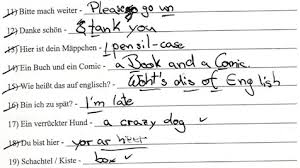 11) Bitte mach weiter - Please go un
12) Danke schön - Stank you
13) Hier ist dein Mäppchen - 1 pensil-case
14) Ein Buch und ein Comic - a Book and a Comic
15) Wie heißt das auf englisch? - Woht's dis of English
16) Bin ich zu spät? - I'm late
17) Ein verrückter Hund - a crazy dog
18) Du bist hier - yor ar
19) Schachtel / Kiste - box